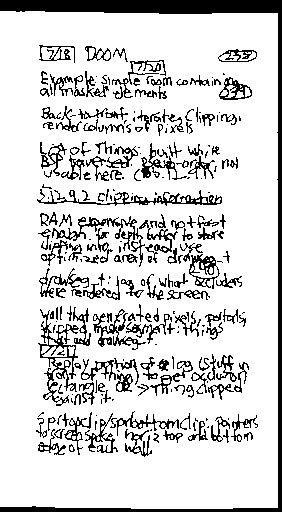 7/18 DOOM 238
7/20
Example: simple room containing
all masked elements 239
Back-to-front, iterate, Clipping,
render columns of pixels
List of Things: built while
BSP traversed. order, not
usable here. 5.12.9.1
5.12.9.2 clipping information
RAM expensive and not fast
enough for depth buffer to store
clipping info, instead, use
optimized array of drawseg_t
240
drawseg_t: log of what occluders
were rendered to the screen.
Wall that generated pixels, portals,
skipped, masked segment: things
that add drawseg_t.
7/21
Replay portion of log (stuff in
front of thing) to get occlusion
rectangle, OR >> Thing clipped
against it.
sprtopclip/sprbottomclip: pointers
to screenspace horiz top and bottom
edge of each wall.